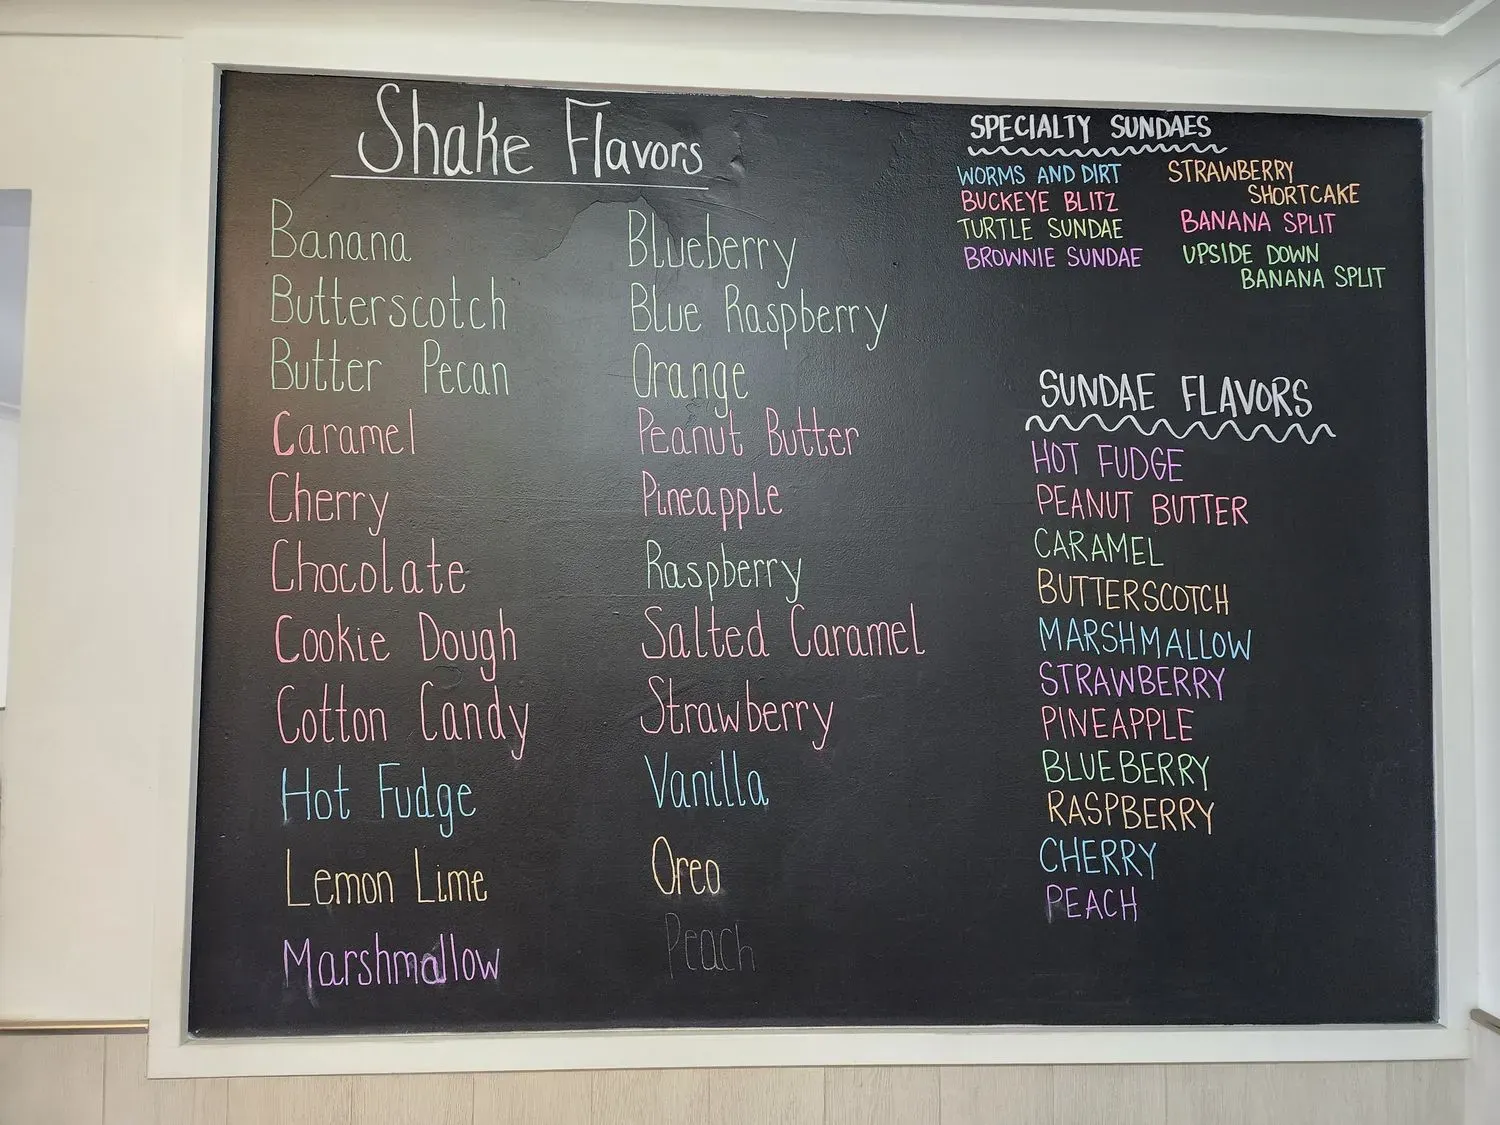 Shake Flavors
Banana
Butterscotch
Butter Pecan
Caramel
Cherry
Chocolate
Cookie Dough
Cotton Candy
Hot Fudge
Lemon Lime
Marshmallow
Blueberry
Blue Raspberry
Orange
Peanut Butter
Pineapple
Raspberry
Salted Caramel
Strawberry
Vanilla
Oreo
Peach
SPECIALTY SUNDAES
WORMS AND DIRT
BUCKEYE BLITZ
TURTLE SUNDAE
BROWNIE SUNDAE
STRAWBERRY
SHORTCAKE
BANANA SPLIT
UPSIDE DOWN
BANANA SPLIT
SUNDAE FLAVORS
HOT FUDGE
PEANUT BUTTER
CARAMEL
BUTTERSCOTCH
MARSHMALLOW
STRAWBERRY
PINEAPPLE
BLUEBERRY
RASPBERRY
CHERRY
PEACH